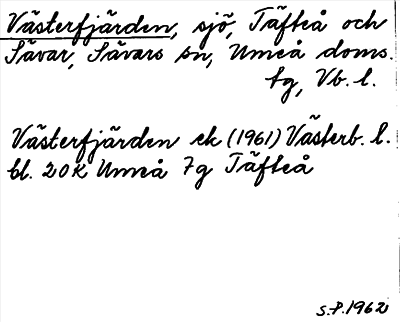 Västerfjärden, sjö, Täfteå och
Sävar, Sävars sn, Umeå doms.
tg, Vb. l.
Västerfjärden ek (1961) Västerb. l.
bl. 20K Umeå 7g Täfteå
S.P. 1962